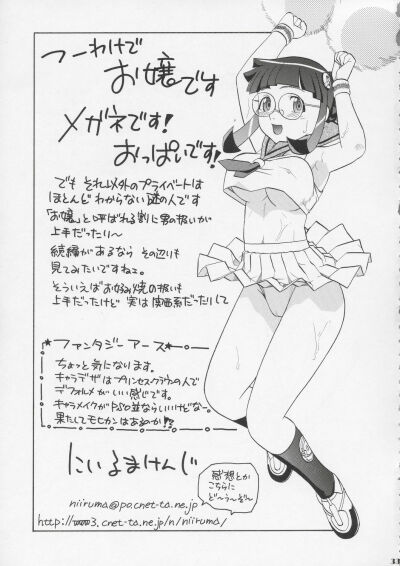 つーわけで
お嬢です
メガネです!
おっぱいです!
でも それ以外のプライベートは
ほとんどわからない謎の人です
「お嬢」と呼ばれる割に男の扱いが
上手だったり〜
続編があるなら その辺りも
見てみたいですねぇ。
そういえばお好み焼の扱いも
上手だったけど 実は関西系だったりして
*ファンタジーアース*
ちょっと気になります。
キャラデザはプリンセスクラウンの人で
デフォルメがいい感じです。
キャラメイクがPSO並ならいいけどなー
果たしてモヒカンはあるのか!?
にいるまけんじ
感想とか
こちらに
ど〜う〜ぞ〜
niiruma@po.cnet-ta.ne.jp
http://www3.cnet-ta.ne.jp/n/niiruma/
31